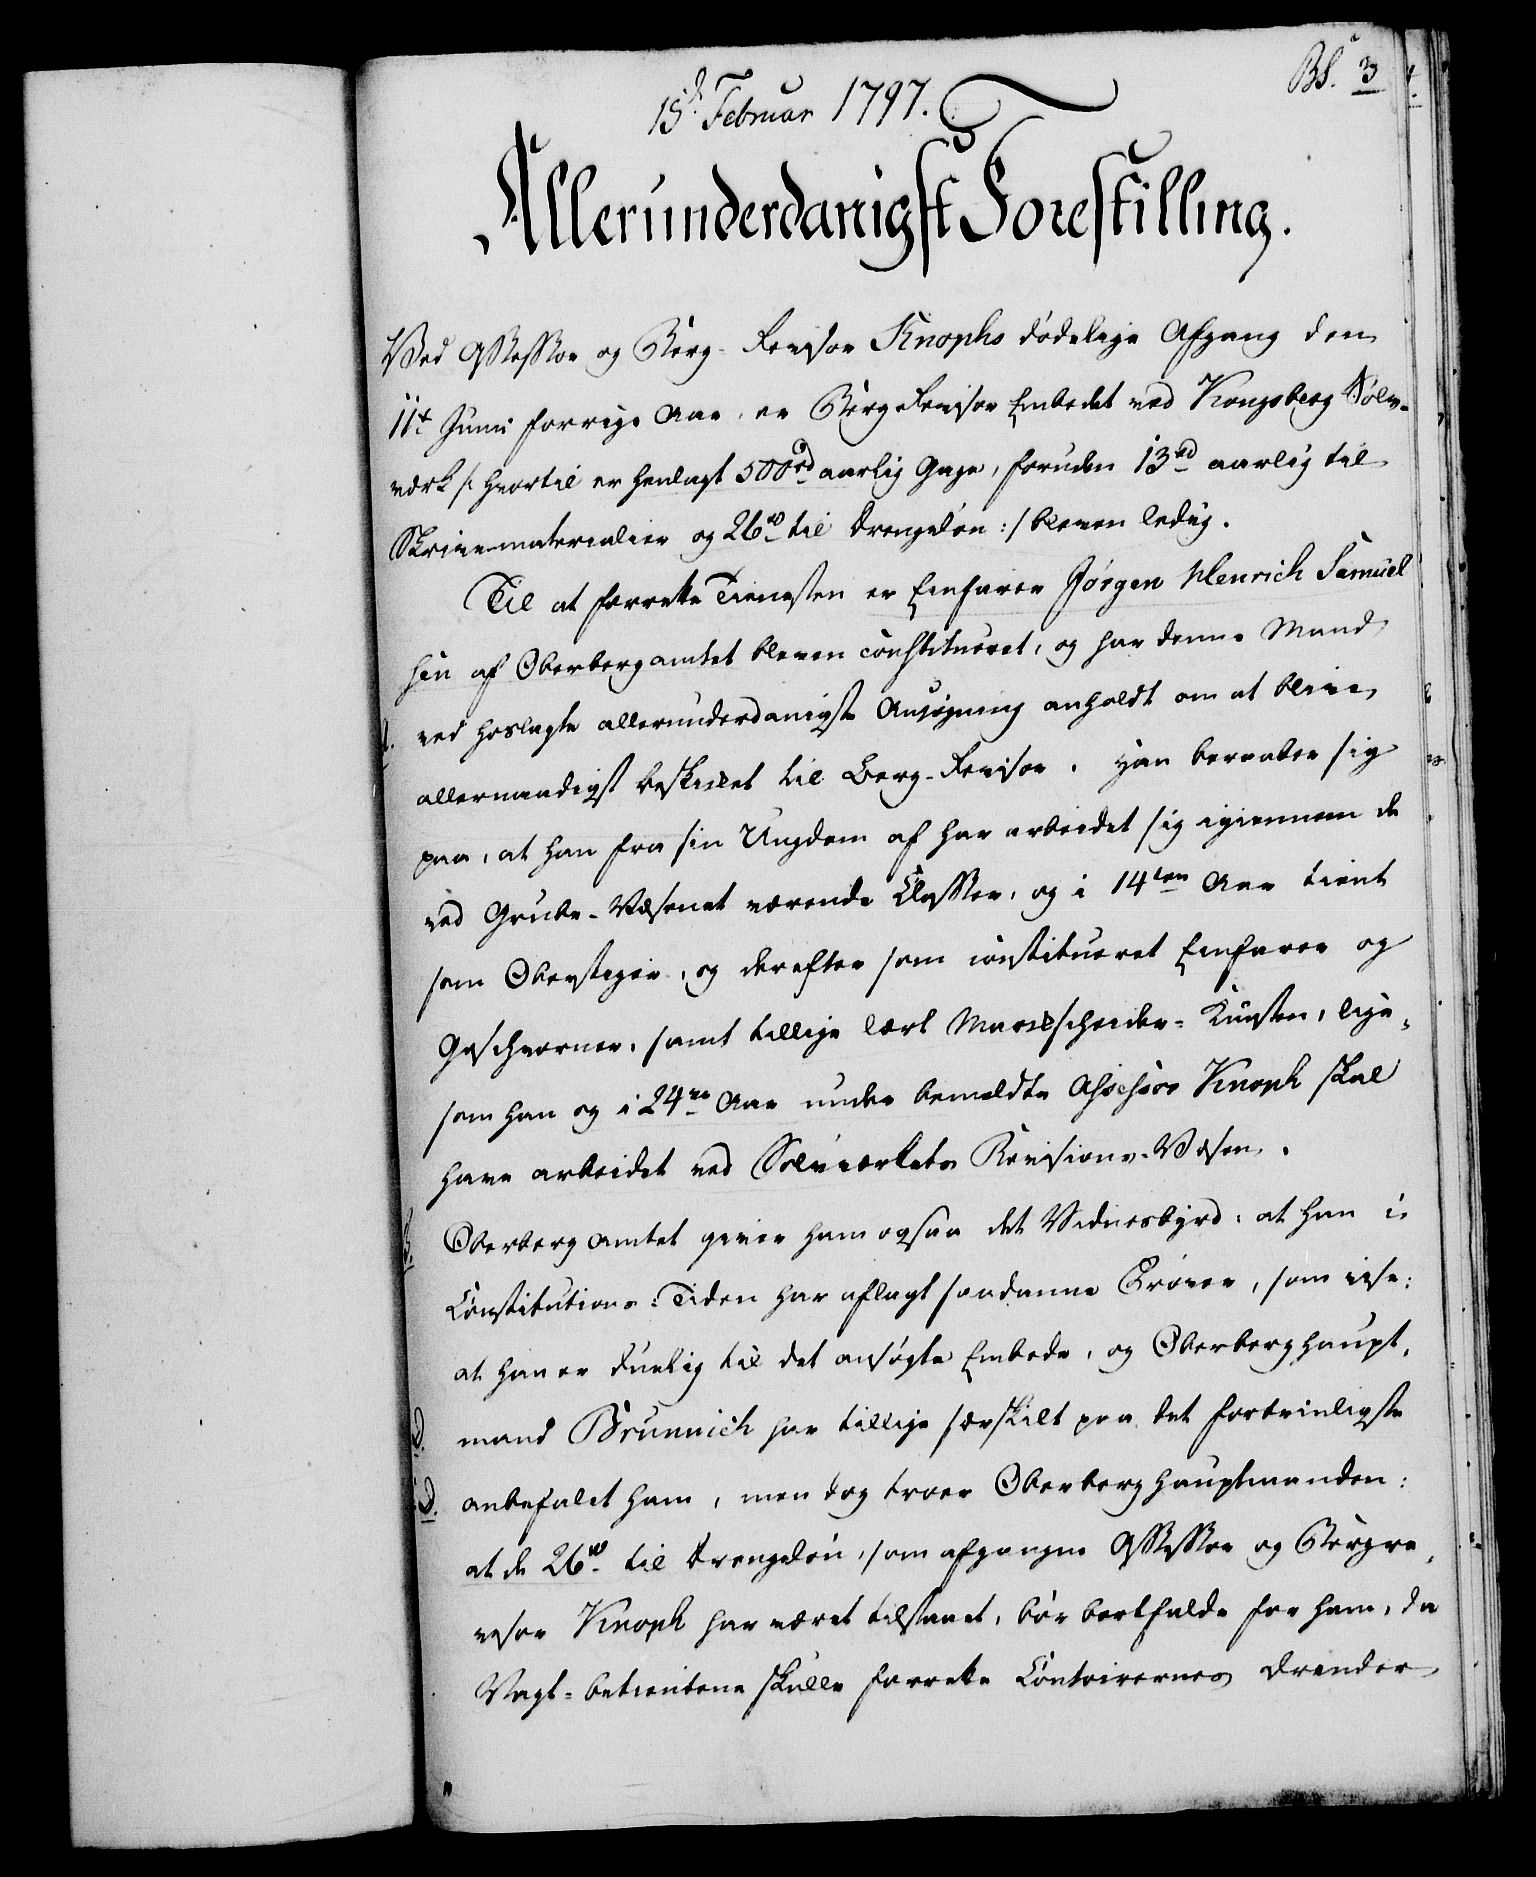 Bl. 3
15d Februar 1797.
Allerunderdanigst Forestilling.
Ved Assessor og Berg-Revisor Knophs dødelige Afgang den
11te Junii forrige Aar, er BergRevisor Embedet ved Kongsberg Sølv-
værk /: hvortil er henlagt 500rd aarlig Gage, foruden 13rd aarlig til
Skrivematerialier og 26rd til Drengeløn :/ bleven ledig.
Til at forrette Tienesten er Einfarer Jørgen Henrich Samuel
hen af Oberbergamtet bleven constitueret, og har denne Mand
ved hoslagte allerunderdanigste Ansøgning anholdt om at blive
allernaadigst beskikket til Berg-Revisor. Han beraaber sig
paa, at han fra sin Ungdom af har arbeidet sig igiennem de
ved Grube-Væsenet værende Classer, og i 14ten Aar tient
som Oberstiger, og derefter som constitueret Einfarer og
Geschworner, samt tillige lært Markscheider-Kunsten, lige-
som han og i 24re Aar under bemældte Assessor Knoph skal
have arbeidet ved Sølvværkets Revisions-Væsen.
Oberbergamtet giver ham ogsaa det Vidnesbyrd: at han i
Constitutions-Tiden har aflagt saadanne Prøver, som vise:
at han er duelig til det ansøgte Embede, og Oberberghaupt-
mand Brunnich har tillige særskilt paa det fortrinligste
D. anbefalet ham, men dog troer Oberberghauptmanden:
at de 26rd til Drengeløn, som afgangne Assessor og Bergre-
visor Knoph har været tilstaaet, bør bortfalde for ham, da
Vagt-betienterne skulle forrette Contoirernes Ærender